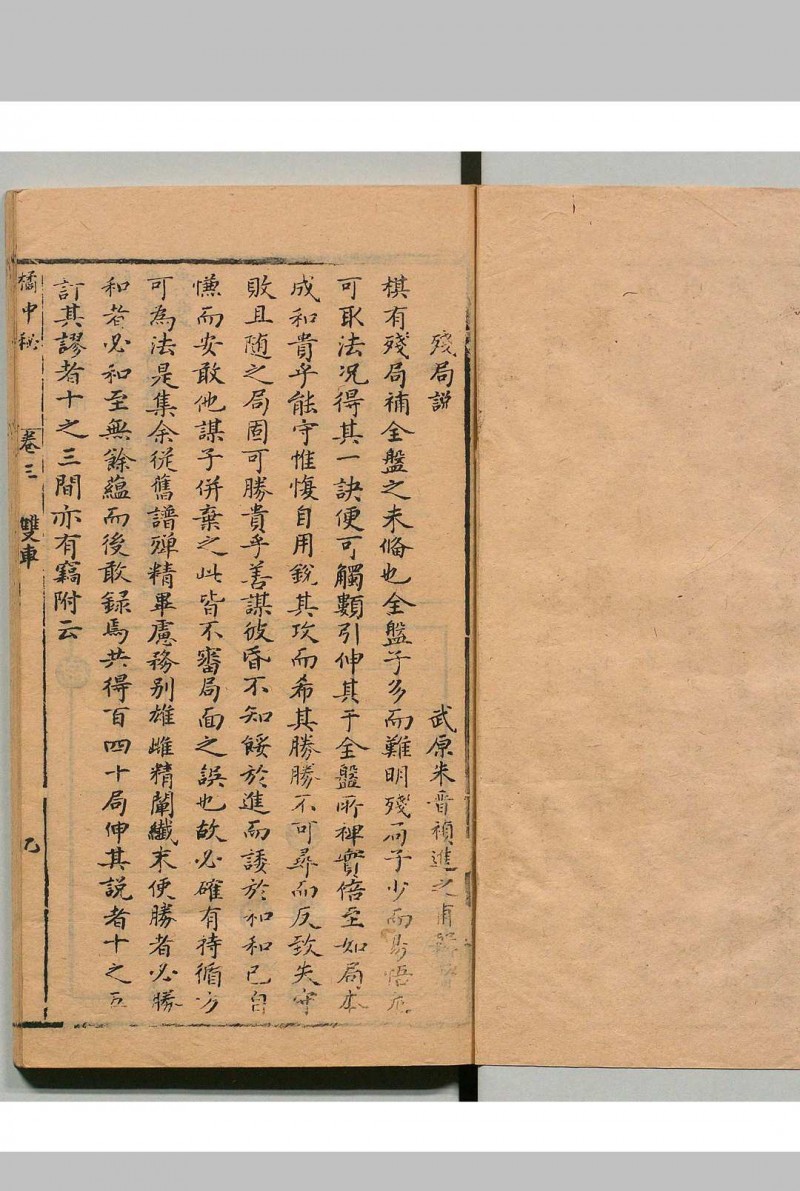 殘局說
武原朱晉楨進之甫
棋有殘局補全盤之未俻也全盤子多而難明殘局子少而易悟
可取法况得其一訣便可觸類引伸其于全盤所裨實倍至如局本
成和貴乎能守惟愎自用銳其攻而希其勝勝不可尋而反致失守
敗且随之局固可勝貴乎善謀彼昏不知餒於進而諉於和和已自
慊而安敢他謀子併棄之此皆不審局面之誤也故必確有待循方
可為法是集余從舊譜殫精畢慮務別雄雌精闡纖末使勝者必勝
和者必和至無餘蘊而後敢録焉共得百四十局伸其說者十之五
訂其謬者十之三間亦有竊附云
橘中秘 卷三 雙車